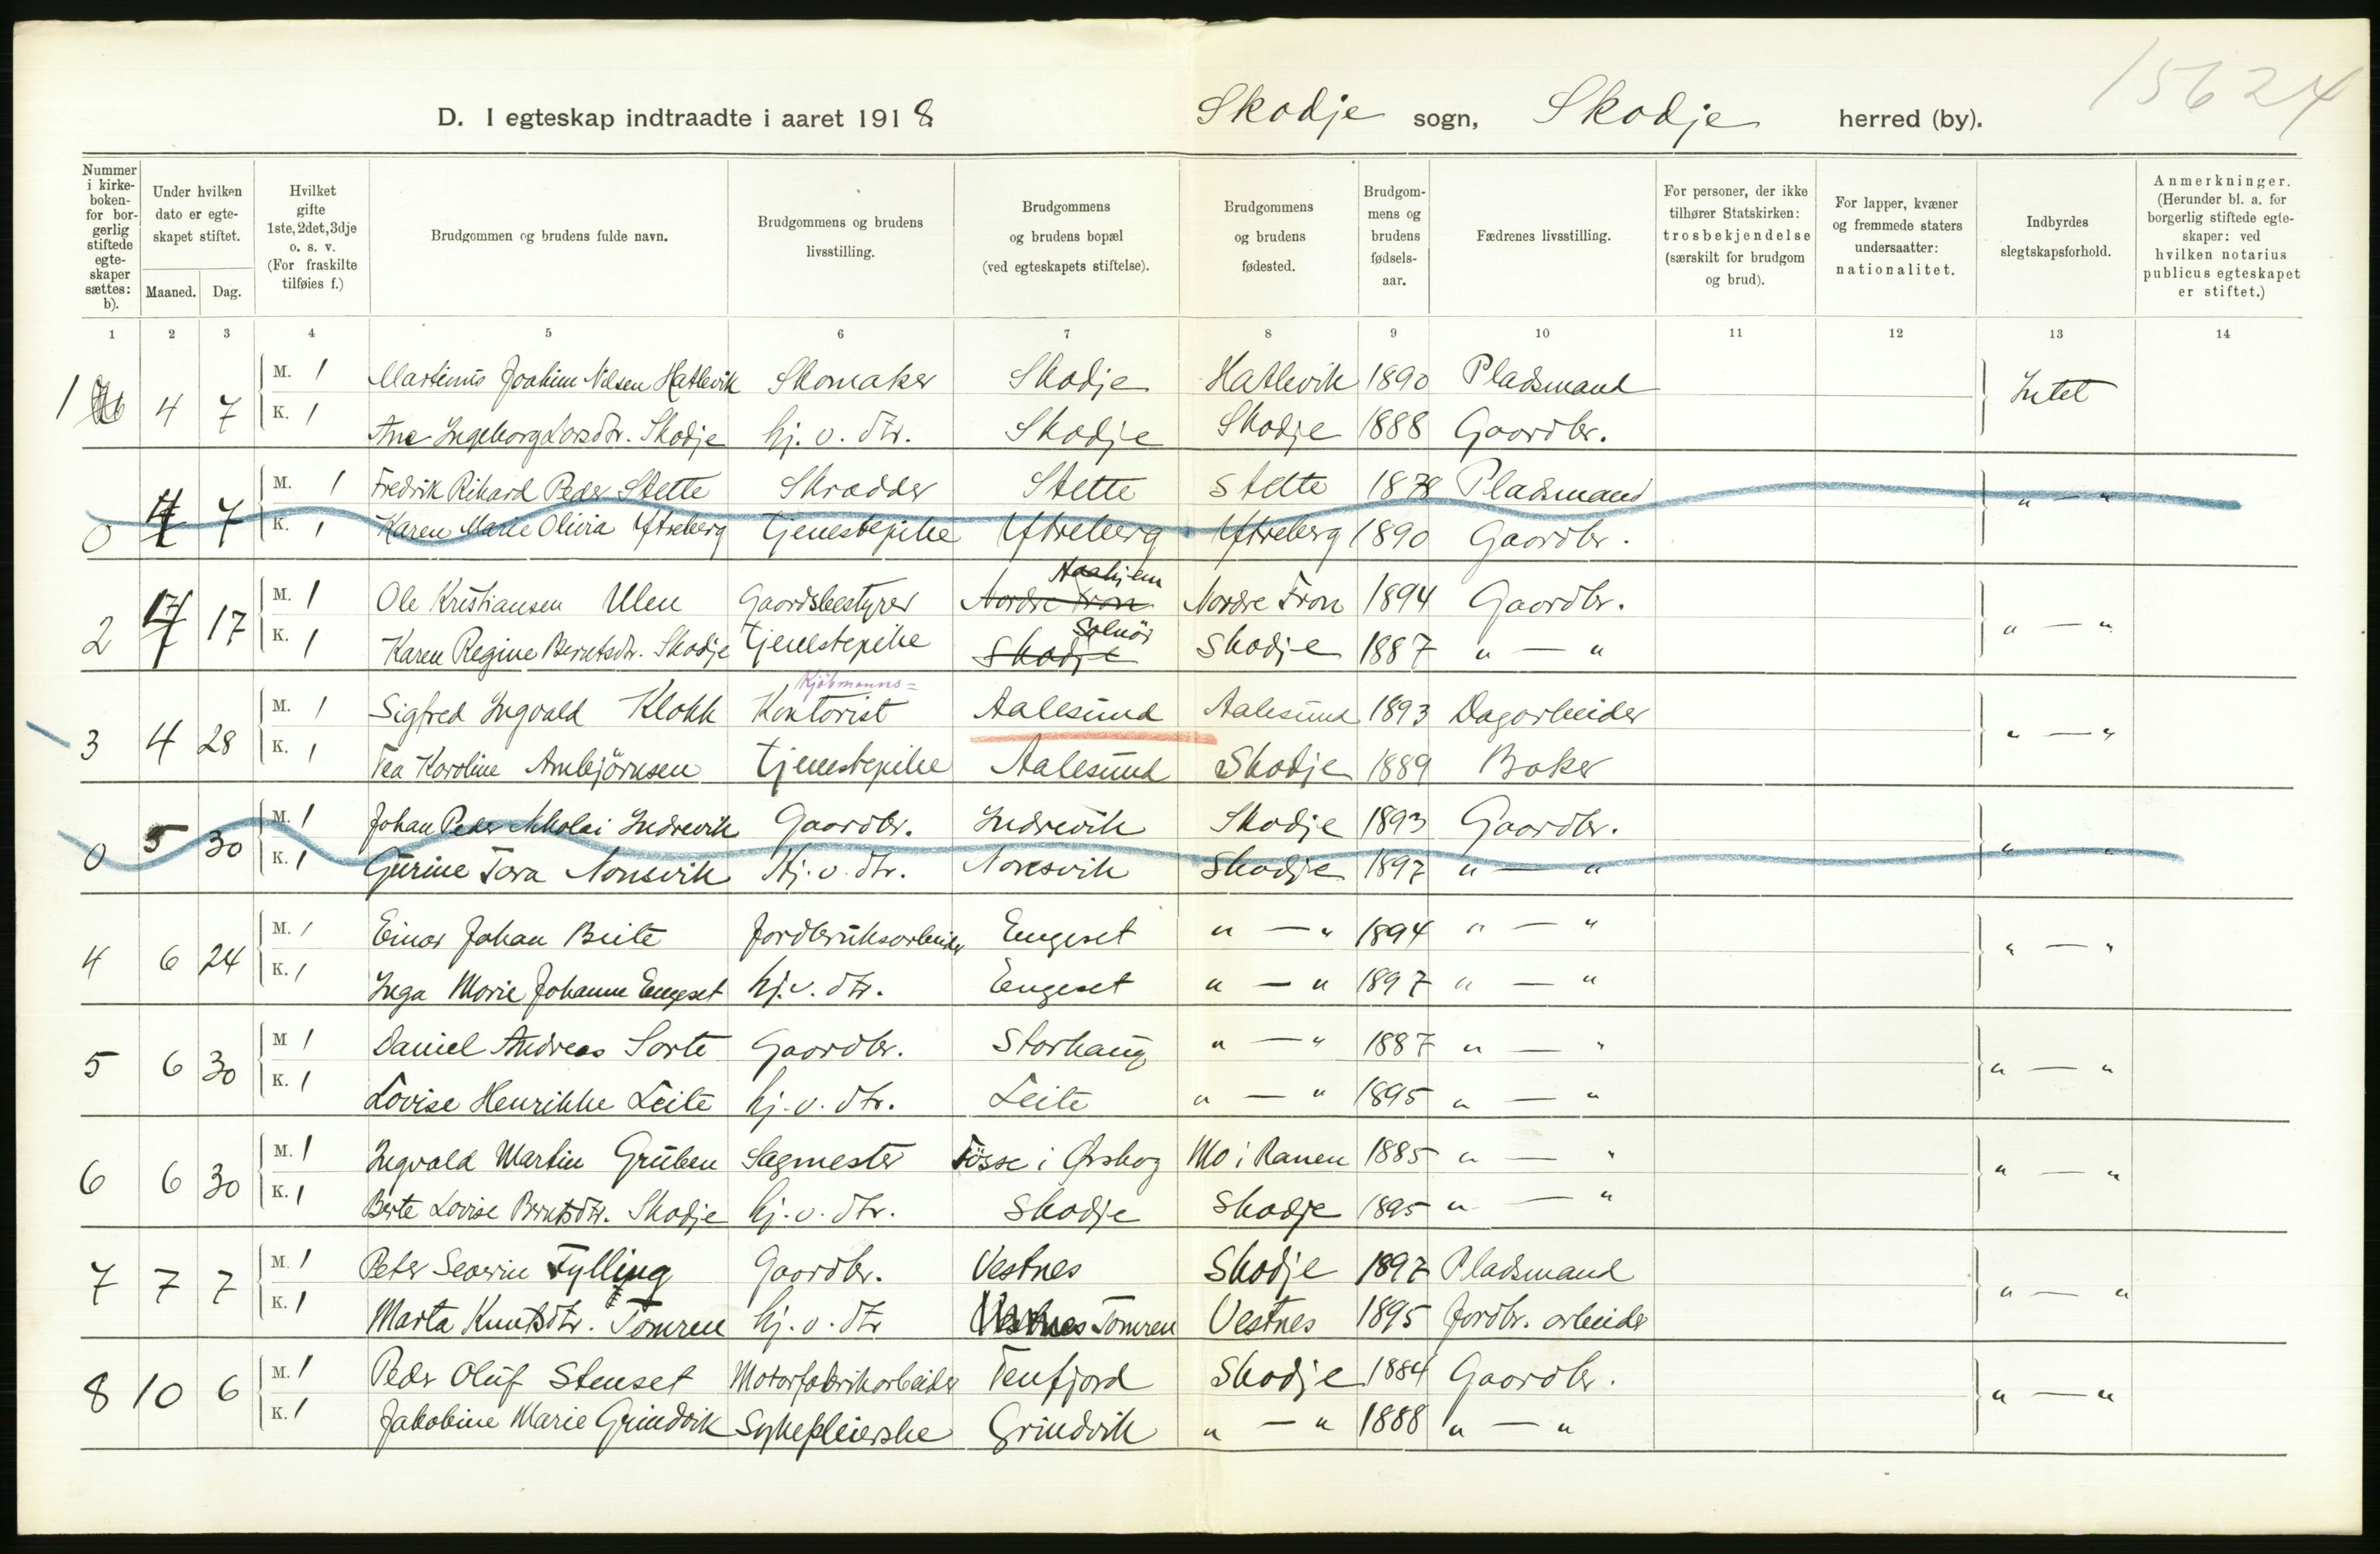 15624
D. I egteskap indtraadte i aaret 1918 Skodje sogn, Skodje herred (by).
Nummer i kirkeboken for borgerlig stiftede egteskaper sættes: b).
Under hvilken dato er egteskapet stiftet.
Maaned. Dag.
Hvilket gifte 1ste, 2det, 3dje o. s. v. (For fraskilte tilføies f.)
Brudgommen og brudens fulde navn.
Brudgommens og brudens livsstilling.
Brudgommens og brudens bopæl (ved egteskapets stiftelse).
Brudgommens og brudens fødested.
Brudgommens og brudens fødselsaar.
Fædrenes livsstilling.
For personer, der ikke tilhører Statskirken: trosbekjendelse (særskilt for brudgom og brud).
For lapper, kvæner og fremmede staters undersaatter: nationalitet.
Indbyrdes slegtskapsforhold.
Anmerkninger. (Herunder bl. a. for borgerlig stiftede egteskaper: ved hvilken notarius publicus egteskapet er stiftet.)
1 2 3 4 5 6 7 8 9 10 11 12 13 14
1 4 7 M. 1 Martinus Joakim Nilsen Hatlevik Skomaker Skodje Hatlevik 1890 Pladsmand Intet
K. 1 Ane Ingeborg Larsdtr. Skodje hj. v. dtr. Skodje Skodje 1888 Gaardbr.
0 4 7 M. 1 Fredrik Rikard Peder Stette Skrædder Stette Stette 1878 Pladsmand " — "
K. 1 Karen Marie Olivia Ytreberg Tjenestepike Ytreberg Ytreberg 1890 Gaardbr.
Aaheim
2 4 17 M. 1 Ole Kristiansen Ulen Gaardsbestyrer Nordre Fron Nordre Fron 1894 Gaardbr. " — "
Solnör
K. 1 Karen Regine Berntsdtr. Skodje Tjenestepike Skodje Skodje 1887 " — "
Kjöbmanns=
3 4 28 M. 1 Sigfred Ingvald Klokk Kontorist Aalesund Aalesund 1893 Dagarbeider " — "
K. 1 Tea Karoline Ambjörnsen Tjenestepike Aalesund Skodje 1889 Baker
0 5 30 M. 1 Johan Peder Nikolai Indrevik Gaardbr. Indrevik Skodje 1893 Gaardbr. " — "
K. 1 Gurine Tora Nonsvik Hj. v. dtr. Nonsvik Skodje 1897 " — "
4 6 24 M. 1 Einar Johan Beite Jordbruksarbeider Engeset " — " 1894 " — " " — "
K. 1 Inga Marie Johanne Engeset hj. v. dtr. Engeset " — " 1897 " — "
5 6 30 M 1 Daniel Andreas Sorte Gaardbr. Storhaug " — " 1887 " — " " — "
K. 1 Lovise Henrikke Leite hj. v. dtr. Leite " — " 1895 " — "
6 6 30 M. 1 Ingvald Martin Gruben Sagmester Fosse i Ørskog Mo i Ranen 1885 " — " " — "
K. 1 Berte Lovise Berntsdtr. Skodje hj. v. dtr. Skodje Skodje 1895 " — "
7 7 7 M. 1 Peter Severin Fylling Gaardbr. Vestnes Skodje 1897 Pladsmand " — "
K. 1 Marta Knutsdtr. Tomren hj. v. dtr Vestnes Tomren Vestnes 1895 Jordbr. arbeider
8 10 6 M. 1 Peder Oluf Stenset Motorfabrikarbeider Tenfjord Skodje 1884 Gaardbr. " — "
K. 1 Jakobine Marie Grindvik Sykepleierske Grindvik " — " 1888 " — "